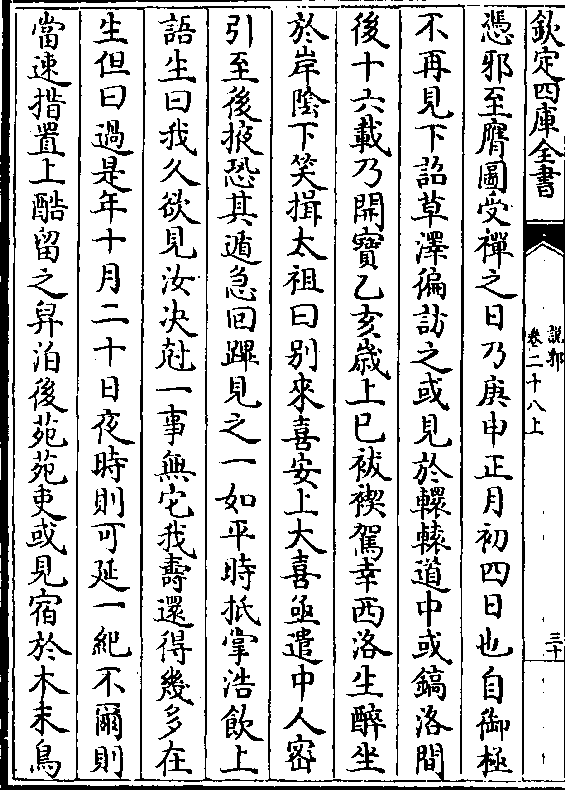 欽定四庫全書
說郛
卷二十八上
三十
憑邪至膺圖受禪之日乃庚申正月初四日也自御極
不再見下詔草澤徧訪之或見於轘轅道中或鎬洛間
後十六載乃開寶乙亥歲上巳袚禊駕幸西洛生醉坐
於岸陰下笑揖太祖曰别來喜安上大喜亟遣中人密
引至後掖恐其遁急回蹕見之一如平時抵掌浩飲上
語生曰我久欲見汝决尅一事無它我壽還得幾多在
生但曰過是年十月二十日夜時則可延一紀不爾則
當速措置上酷留之舁泊後苑苑吏或見宿於木末鳥